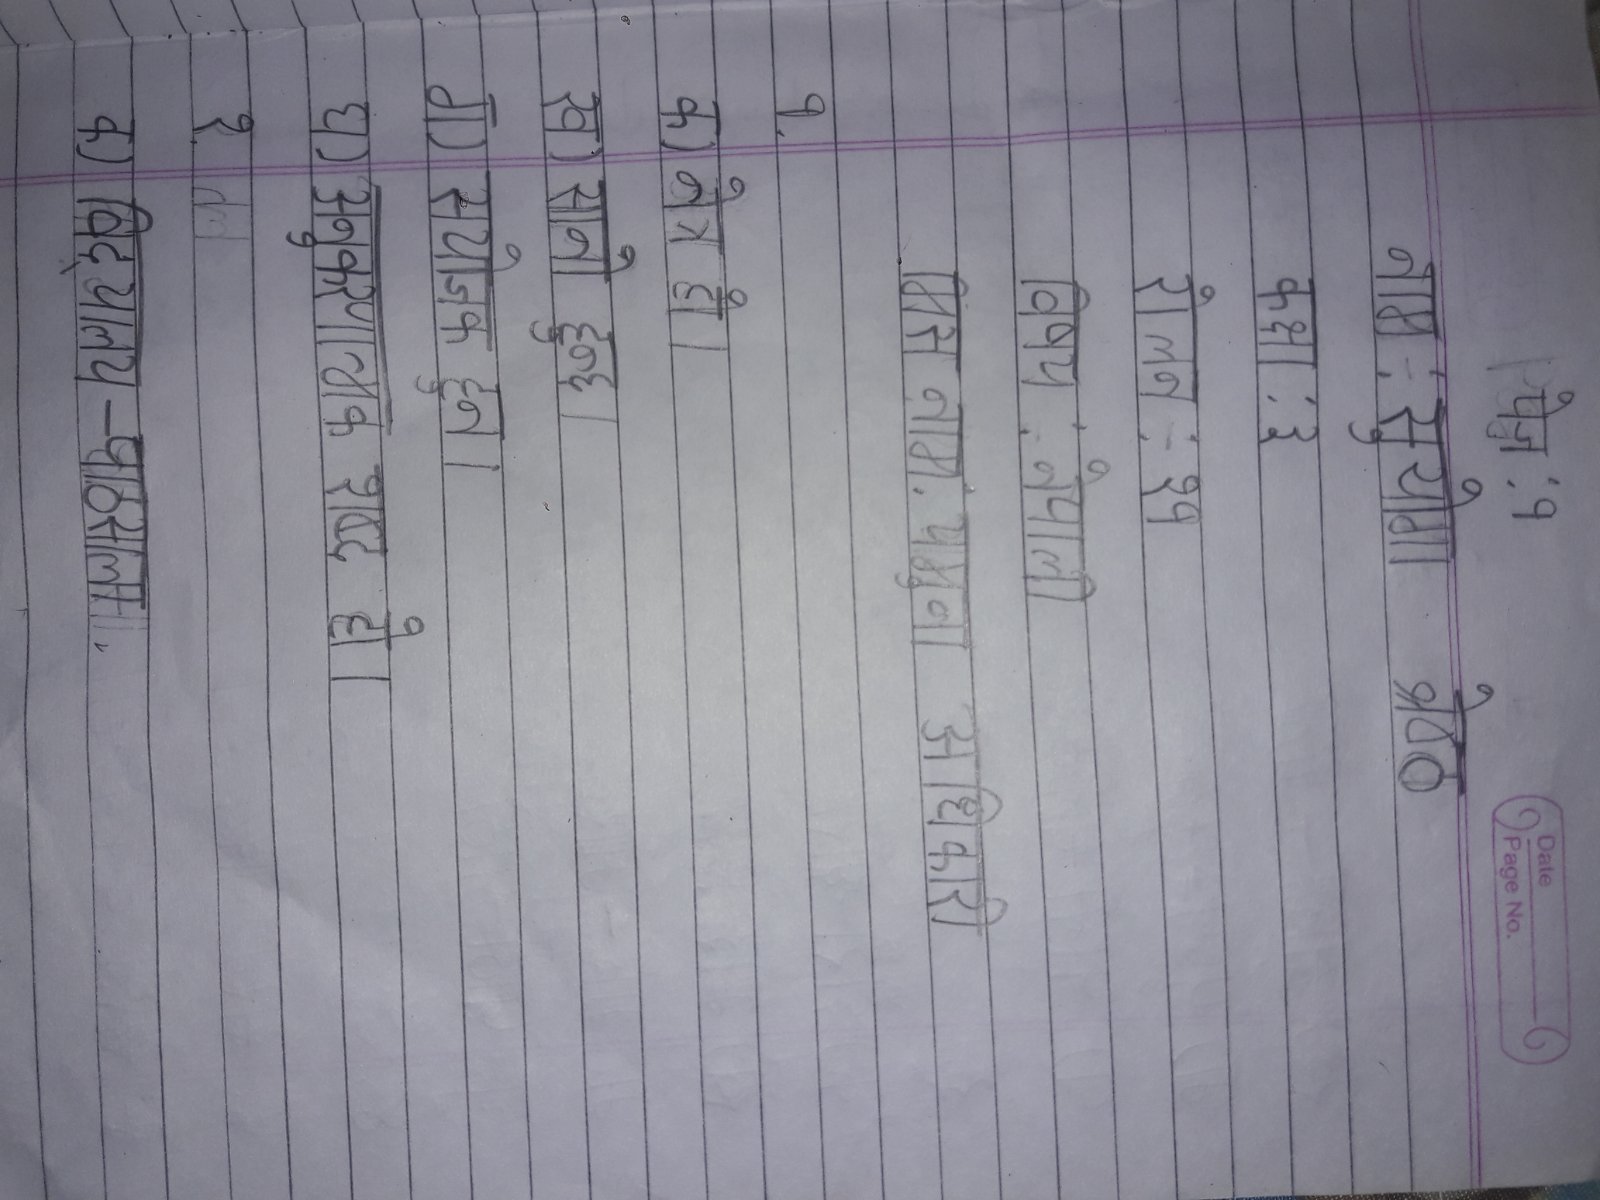 पेज : १
Date
Page No.
नाम : सुयोग श्रेष्ठ
कक्षा : ३
रोलन : २१
विषय : नेपाली
मिस नाम : यमुना अधिकारी
१.
क) नेत्र हो।
ख) साने हुन्
ग) संयोजक हुन्।
घ) अनुकरणवाचक शब्द हो।
२.
क) विद्यालय - पाठशाला